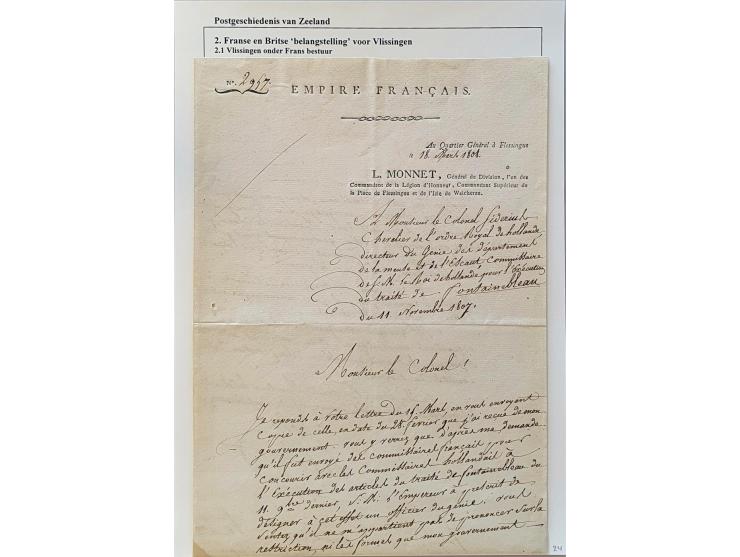 Postgeschiedenis van Zeeland
2. Franse en Britse ‘belangstelling’ voor Vlissingen
2.1 Vlissingen onder Frans bestuur
N°. 2957.
EMPIRE FRANÇAIS.
Au Quartier Général à Flessingue
le 18. Mars 1808.
L. MONNET, Général de Division, l'un des
Commandans de la Légion d'Honneur, Commandant Supérieur de
la Place de Flessingue et de l'Isle de Walcheren.
à Monsieur le Colonel
Chevalier de l'ordre Royal de hollande
directeur Du Genie des département
de la meuse et de l'Escaut Committaire
de S. M. le Roi de hollande pour l'Exécution
du traité de Fontainebleau
du 11. Novembre 1807.
Monsieur le Colonel !
Je reponds à votre lettre du 15. Mars, en vous envoyant
Copie de celle, en date du 28. fevrier que j'ai reçue de mon
gouvernement. vous y verrez que d'après ma demande
qu'il fut envoyé des committaires français pour
concourir avec les Committaires hollandais à
l'Exécution des articles du traité de fontainebleau du
11. 9bre dernier, S. M. l'Empereur a prescrit de
désigner à cet effet un officier du génie. vous
sentez qu'il ne m'appartient pas de prononcer sur la
restriction, ni les formes que mon gouvernement
24